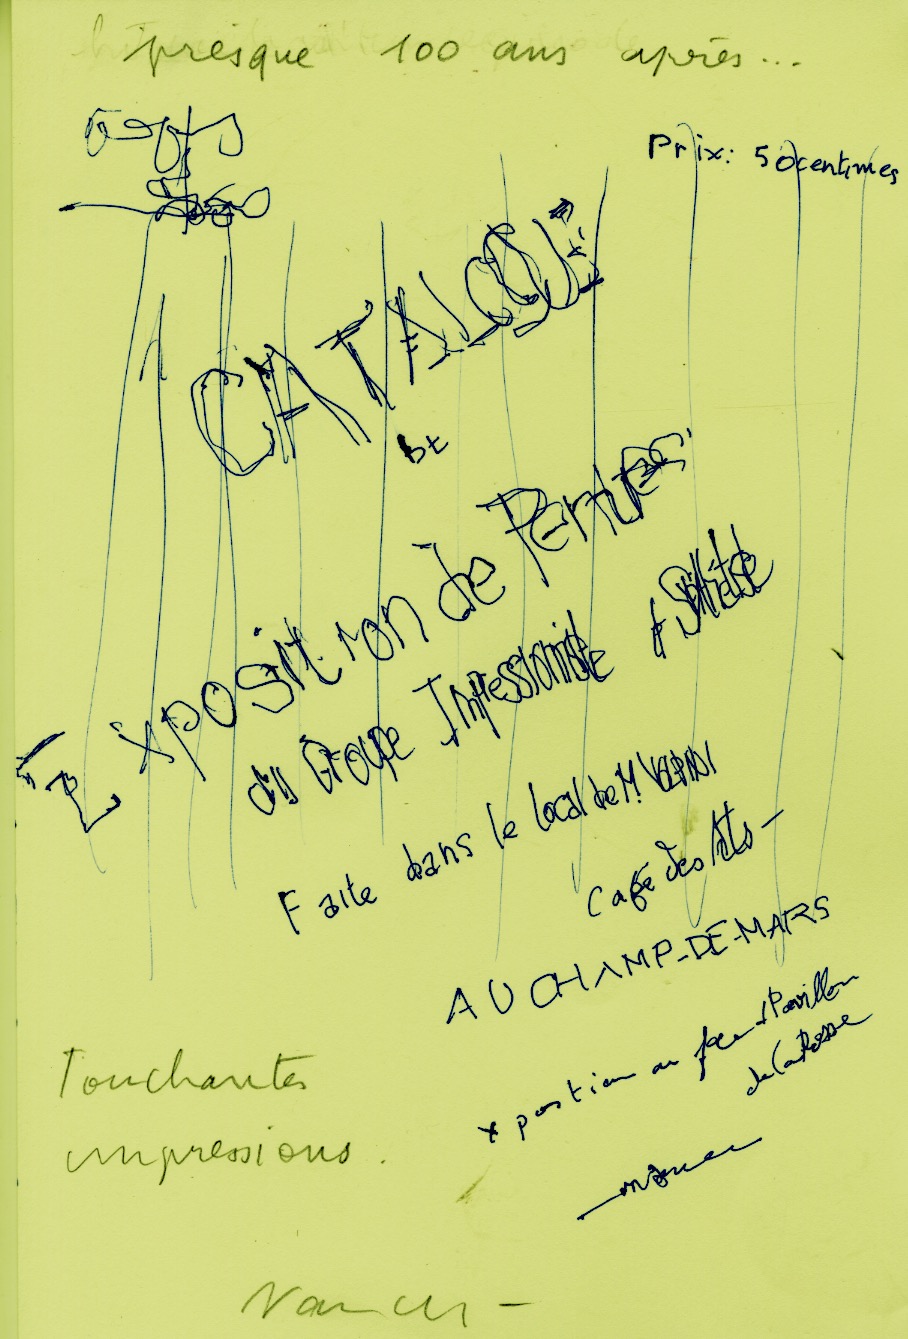 presque 100 ans après...
Prix: 50 centimes
CATALOGUE
Exposition de Peintures
du Groupe Impressionniste &
Faite dans le local de M. VOLPINI
Café des Arts -
AU CHAMP-DE-MARS
xposition en face Pavillon
de la Presse
Touchantes
impressions.